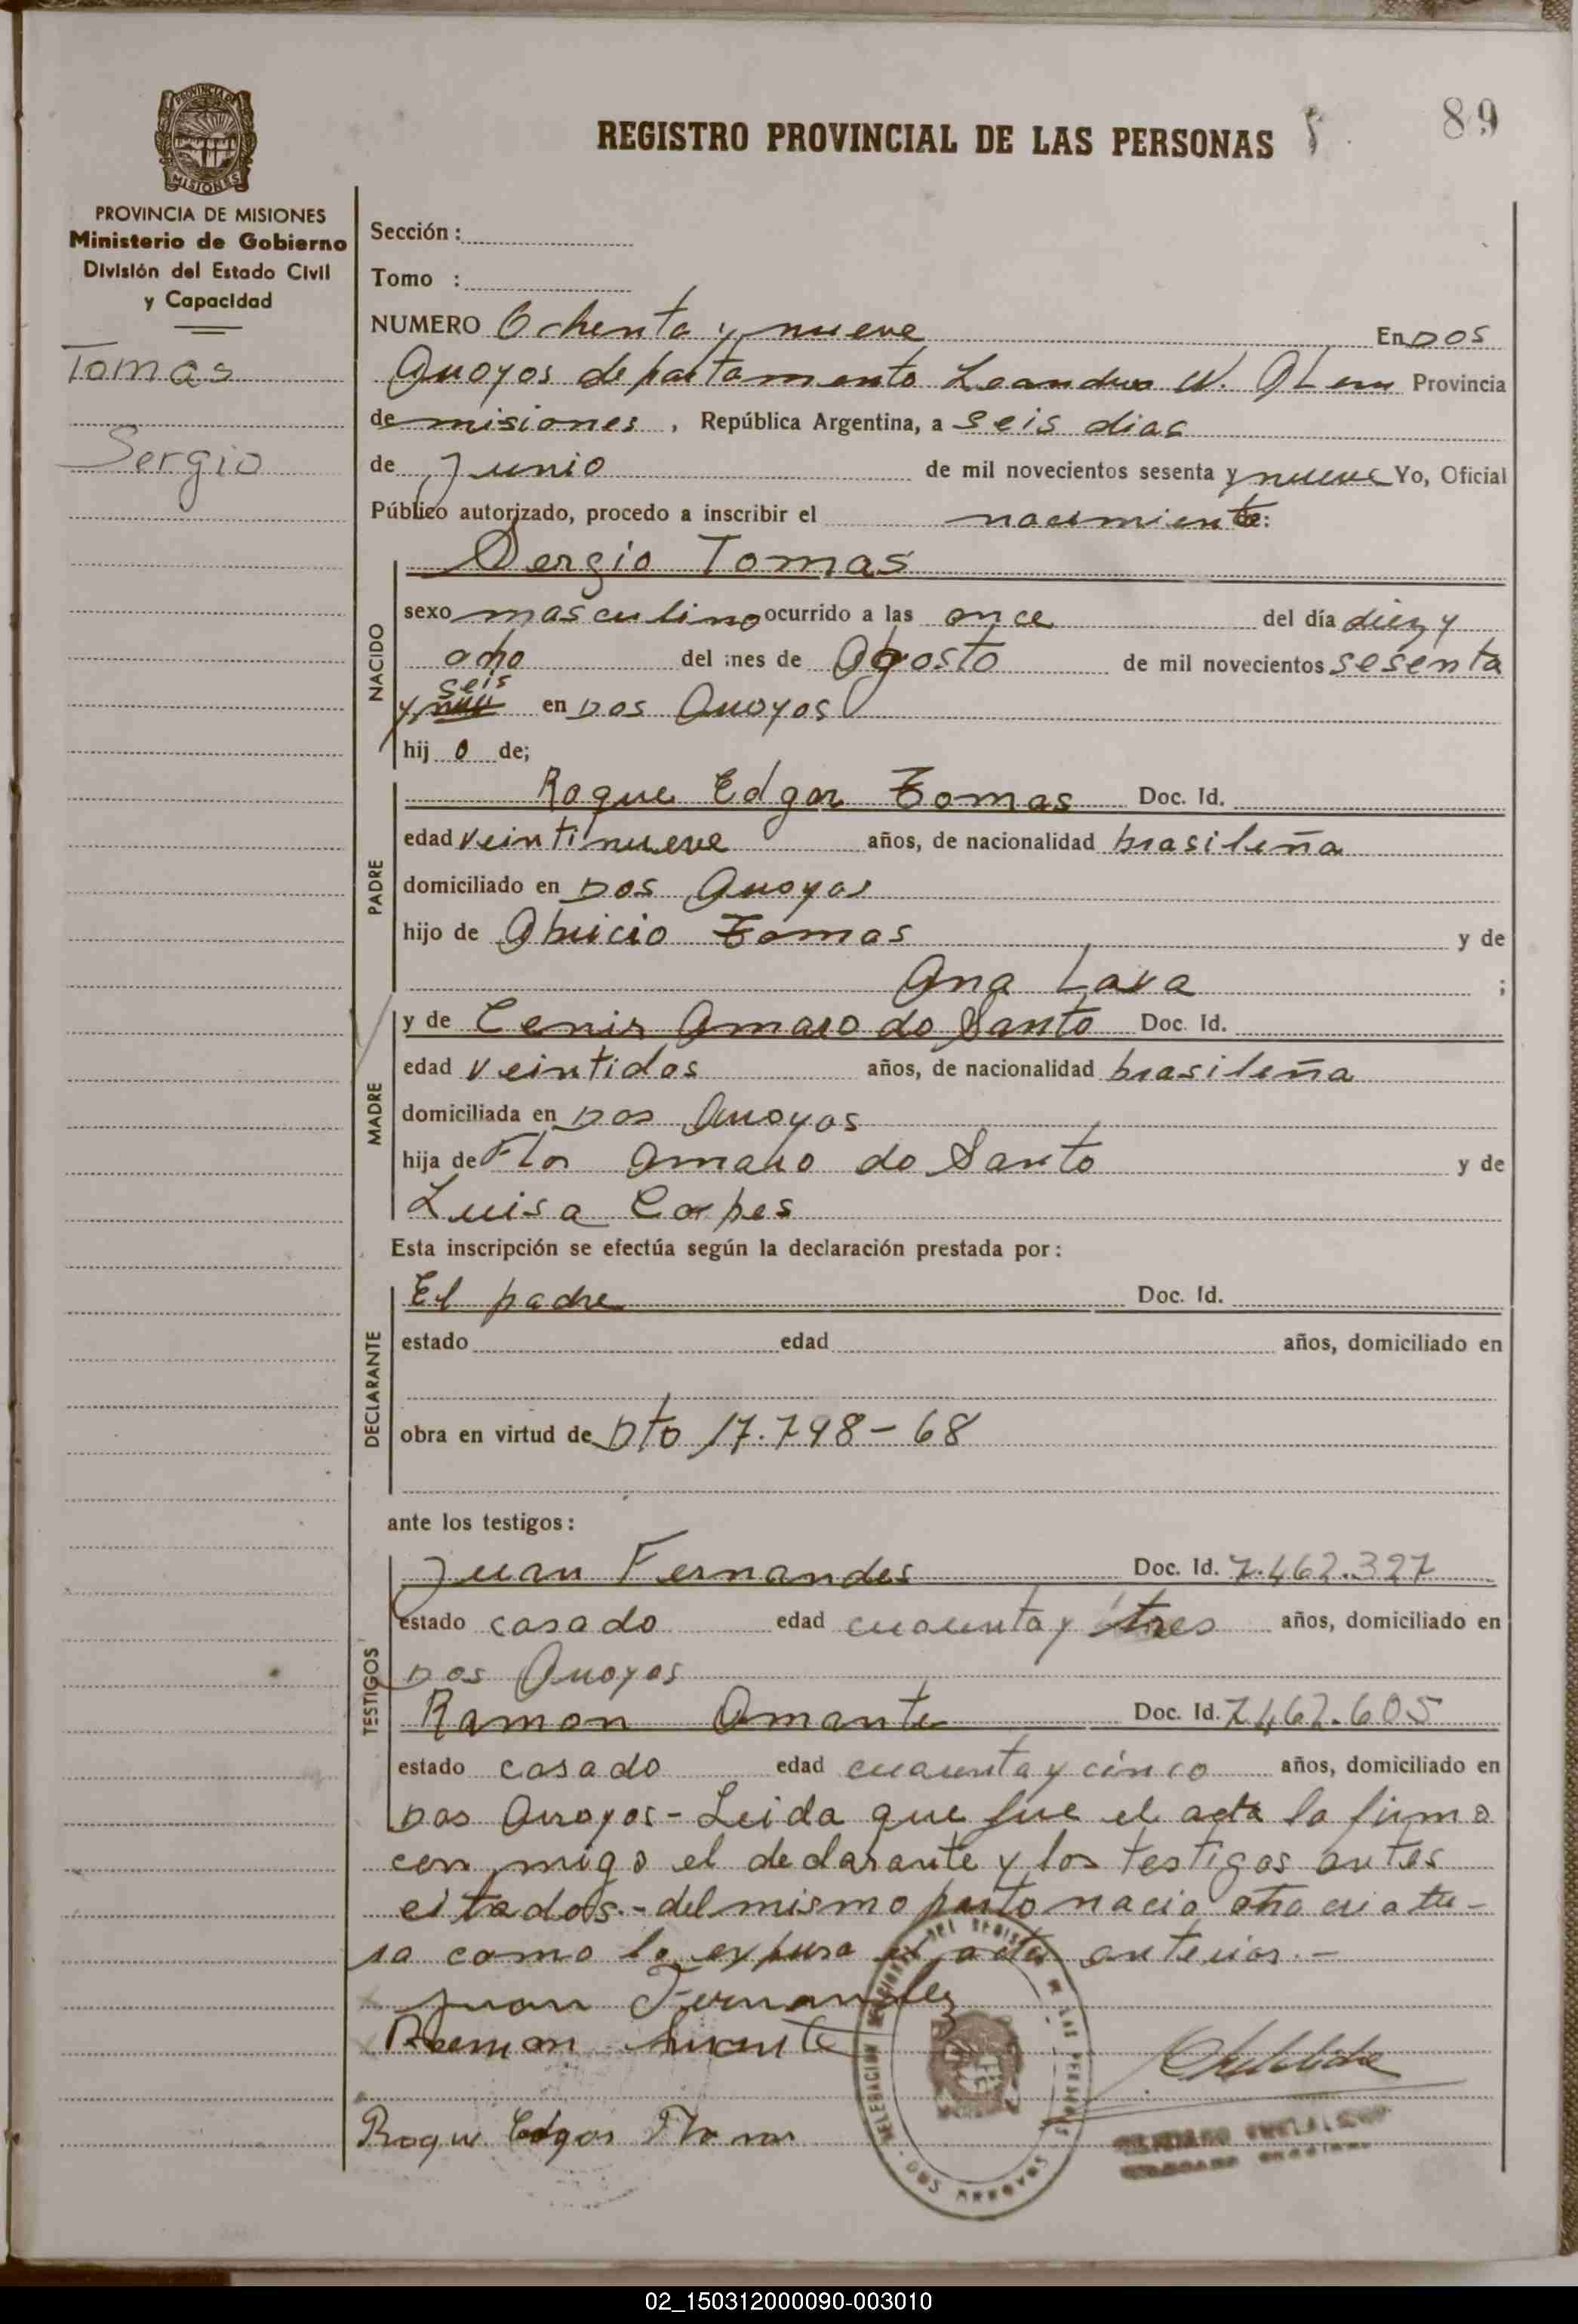 REGISTRO PROVINCIAL DE LAS PERSONAS
89
PROVINCIA DE
MISIONES
PROVINCIA DE MISIONES
Ministerio de Gobierno
División del Estado Civil
y Capacidad
Tomas
Sergio
Sección :
Tomo :
NUMERO Ochenta y nueve En DOS
Arroyos departamento Leandro N. ALem Provincia
de misiones , República Argentina, a seis dias
de Junio de mil novecientos sesenta y nueve Yo, Oficial
Público autorizado, procedo a inscribir el nacimiento:
NACIDO
Sergio Tomas
sexo masculino ocurrido a las once del día diez y
ocho del mes de Agosto de mil novecientos sesenta
seis
y en Dos Arroyos
hij o de;
PADRE
Roque Edgar Tomas Doc. Id.
edad veintinueve años, de nacionalidad brasileña
domiciliado en Dos Arroyos
hijo de Abricio Tomas y de
Ana Lava ;
MADRE
y de Cenir Amaro do Santo Doc. Id.
edad veintidos años, de nacionalidad brasileña
domiciliada en Dos Arroyos
hija de Flor Amaro do Santo y de
Luisa Corpes
Esta inscripción se efectúa según la declaración prestada por :
DECLARANTE
El padre Doc. Id.
estado edad años, domiciliado en
obra en virtud de Dto 17.798-68
ante los testigos :
TESTIGOS
Juan Fernandes Doc. Id. 7.462.327
estado casado edad cuarenta y tres años, domiciliado en
Dos Arroyos
Ramon Amante Doc. Id. 7.462.605
estado casado edad cuarenta y cinco años, domiciliado en
Dos Arroyos - Leida que fue el acta la firma
con migo el declarante y los testigos antes
citados.- del mismo parto nacio otra criatu-
ra como lo expresa el acta anterior.-
Juan Fernandez
Ramon Amante
Roque Edgar
DOS ARROYOS
02_150312000090-003010